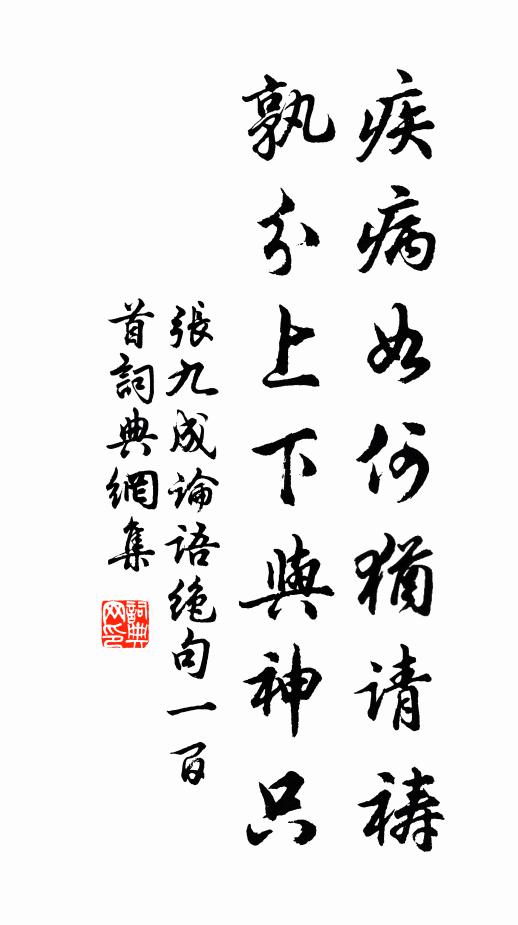 疾病如何猶请祷
孰分上下與神只
張九成論语绝句一百
首詞典網集
詞典
网印